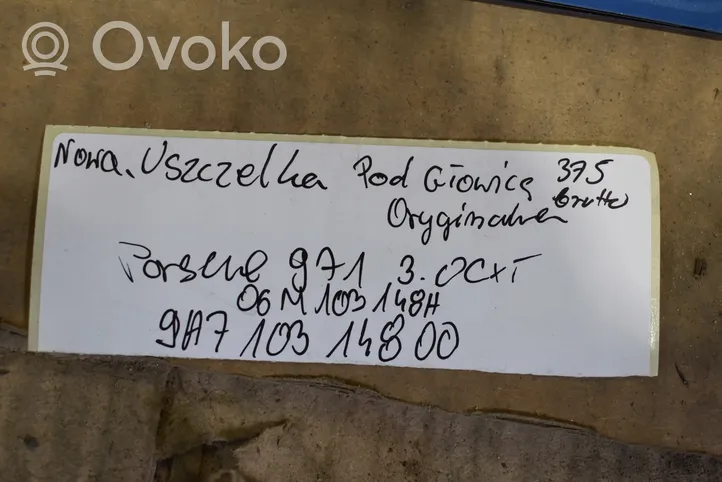 Ovoko
Nowa. Uszczelka Pod Głowicą 375 brutto
Oryginalna
Porsche 971 3.0CXT
06M 103 148H
9A7 103 148 00